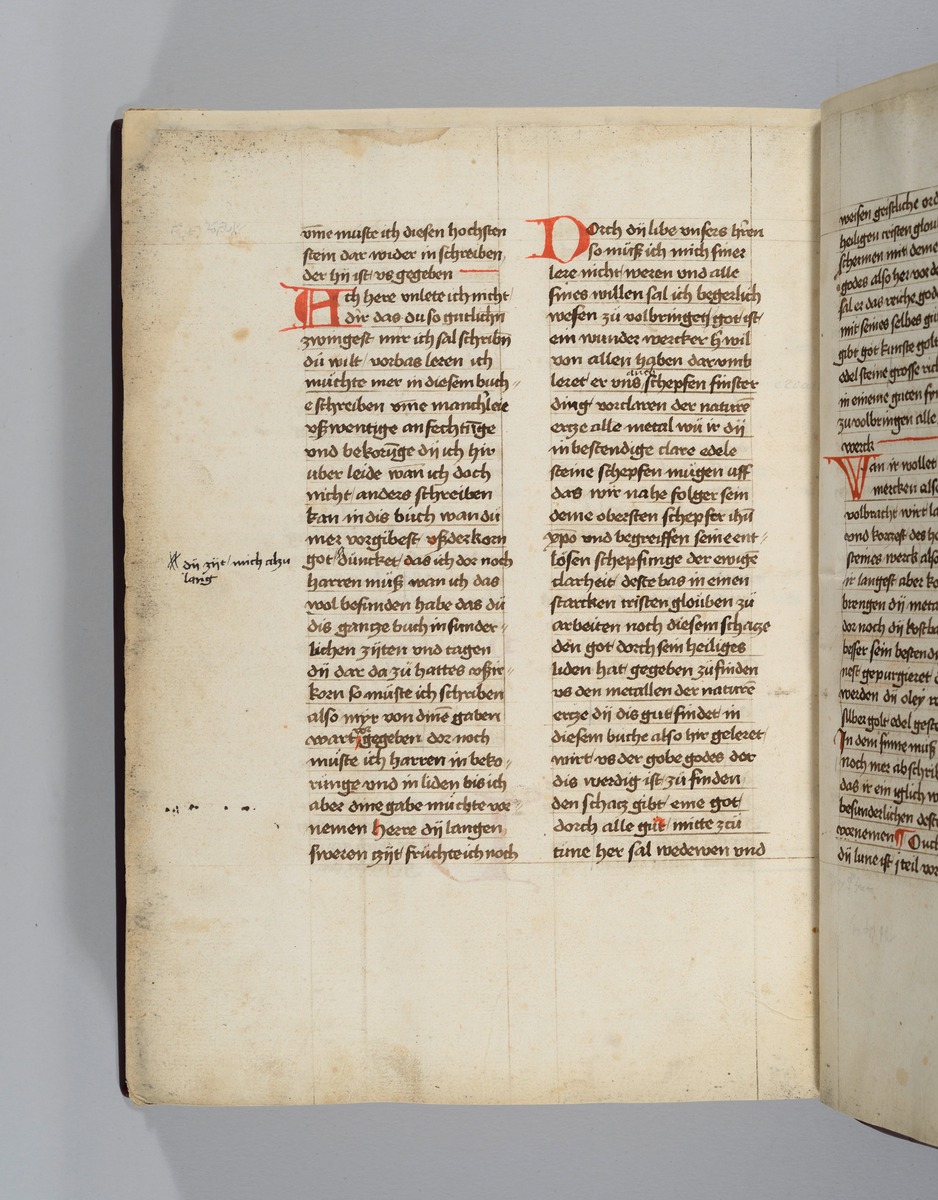 vm̄e muste ich diesen hochsten
stein dar wider in schreiben
der hij ist vs gegeben
Ach here vnlete ich nicht
dir das du so gutlichn
zwingest mir ich sal schribn̄
dü wilt vorbas leren ich
müchte mer in diesem buch
e schreiben vm̄e manch'leie
vßwentige anfechtūge
vnd bekorūge dÿ ich hir
uber leide wan ich doch
nicht anders schreiben
kan in dis büch wan dü
mer vorgibest vß der korn
got düncket das ich dor noch
harren müß wan ich das
wol befunden habe das dü
dis gantze buch in sunder
lichen zijten vnd tagen
dÿ dar da zü hattes vßir
korn so müste ich schriben
also mÿr von dinē gaben
wart vor gegeben dor noch
müste ich harren in beko
rünge vnd in liden bis ich
aber dine gabe müchte vor
nemen herre dÿ langen
sweren tzijt früchte ich noch
dÿ zijt mich alzu
lang
Dorch dÿ libe vnsers hr̄en
so müß ich mich siner
lere nicht weren vnd alle
sines willen sal ich begerlich
wesen zü volbringen got ist
ein wunder wercker h̄ wil
von allen haben darvmb
leret er vns auch schepfen finster
ding vorclaren der naturē
ertze alle metal wü ir dÿ
in bestendige clare edele
steine schepfen mügen uff
das wir nahe folger sein
deme obersten schepfer ihū
xpo vnd begreiffen seine ent
lösen schepfunge der ewigē
clarheit deste bas in einen
starcken cristen gloüben zü
arbeiten noch diesem schatze
den got dorch sein heiliges
liden hat gegeben zü finden
vs den metallen der naturē
ertze dÿ dis gut findet in
diesem buche also hir geleret
wirt vs der gobe godes dor
dis werdig ist zü finden
den schatz gibt eine got
dorch alle güt mitte zcü
tüne her sal wedewen vnd
weisen geistliche ord
heiligen cristen glou
schermen mit deme
godes also her vor de
sal er das reiche gode
mit seines selbes gu
gibt got kunste golt
edel steine grosse rich
in eineme guten
zu volbringen alle
werck
Wan ir wollet
mercken also
volbracht wirt
vnd des he
steines werck also
ir langest aber
brengen dÿ meta
dor noch dÿ kostba
besser sein
nest gepurgieret
werden dÿ oley
silber golt edel geste
In dem sinne muß
noch mer ab schrib
das ir ein iglich
besunderlichen
vornemen Ouch
dÿ lune ist j teil vor